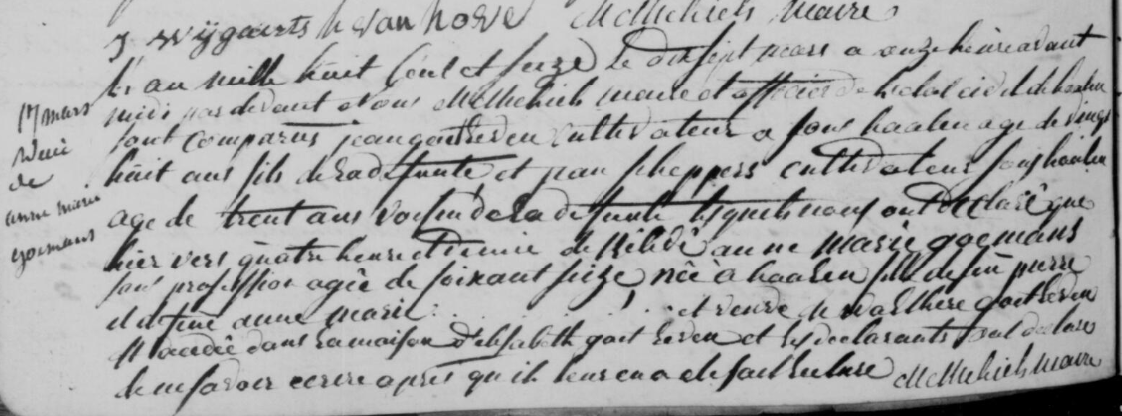 J Wijgaerts h van hove M Michiels Maire
L'an mille huit Cent et Seize le dix sept mars a onze heure avant
midi par devant nous M Michiels maire et officier de l'etat civil de haelen
sont comparus jean cultivateur a sous haalen age de vingt
huit ans fils de la defunte et jean scheppers cultivateur sous haalen
age de trent ans voisin de la defunte lesquels nous ont declaré que
hier vers quatre heure et demie anne marie goemans
sans profession agée de soixant seize née a haalen fille de feu pierre
et de feue anne marie . . . et veuve de
est decedée dans sa maison d'elisabeth et les declarants ont declare
de ne savoir ecrire apres qu'il leur en a ete fait lecture M Michiels Maire
17 mars
de
anne marie
goemans